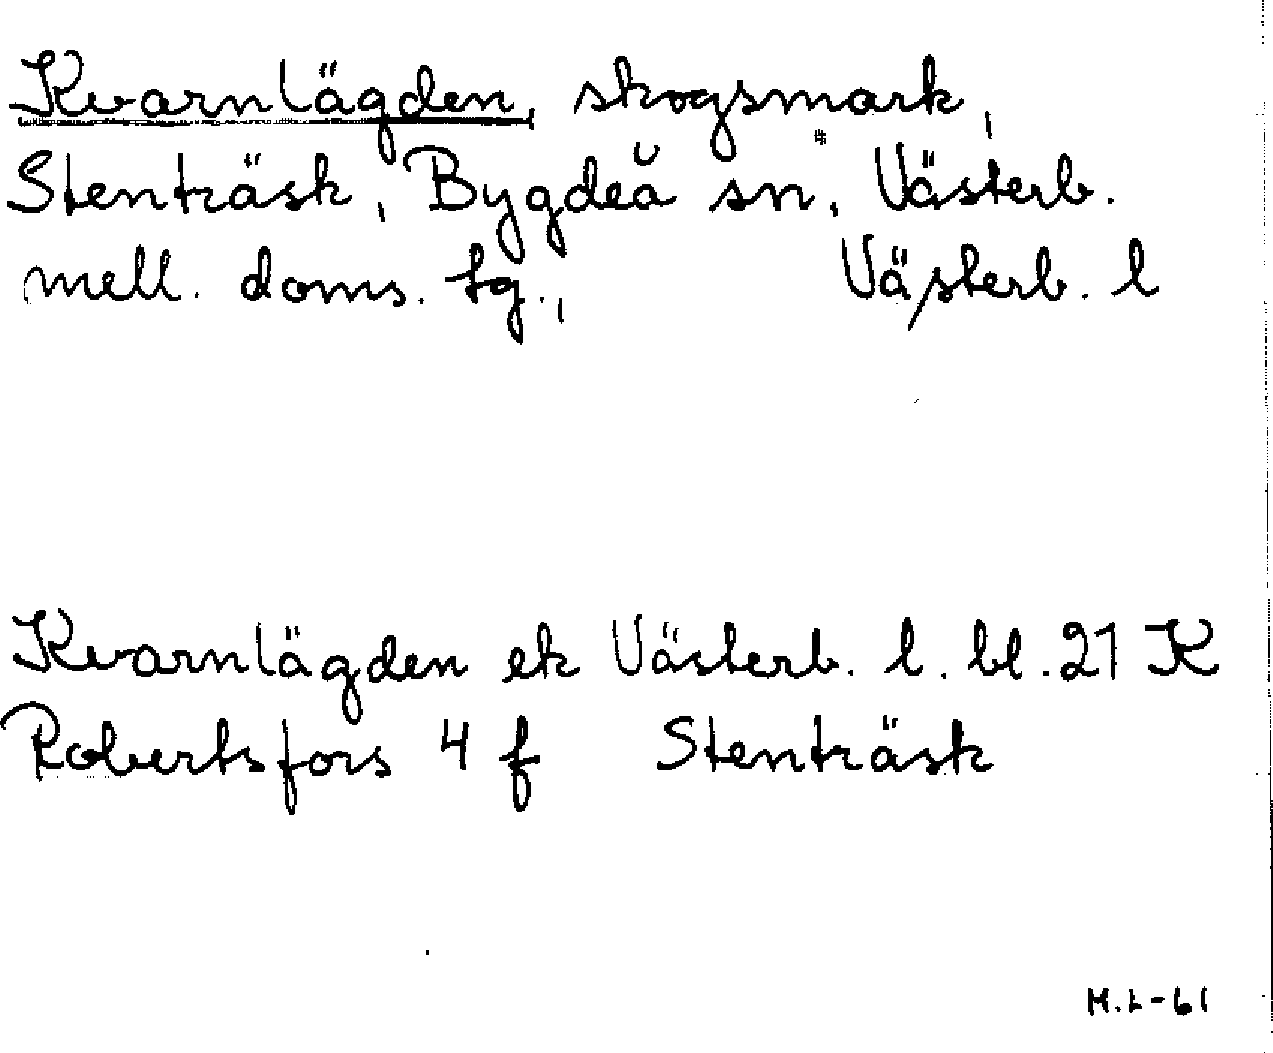 Kvarnlägden, skogsmark,
Stenträsk, Bygdeå sn, Västerb.
mell. doms. tg., Västerb. l
Kvarnlägden ek Västerb. l. bl. 21 K
Robertsfors 4 f Stenträsk
M.L-61